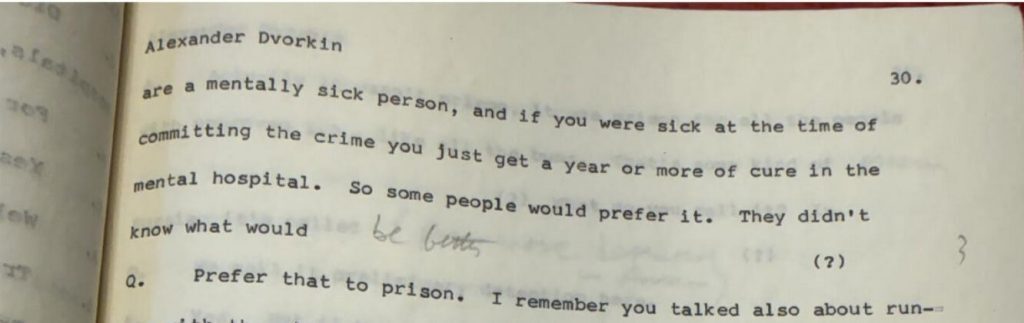 Alexander Dvorkin
30.
are a mentally sick person, and if you were sick at the time of
committing the crime you just get a year or more of cure in the
mental hospital. So some people would prefer it. They didn't
know what would be better (?) 3
Q. Prefer that to prison. I remember you talked also about run-